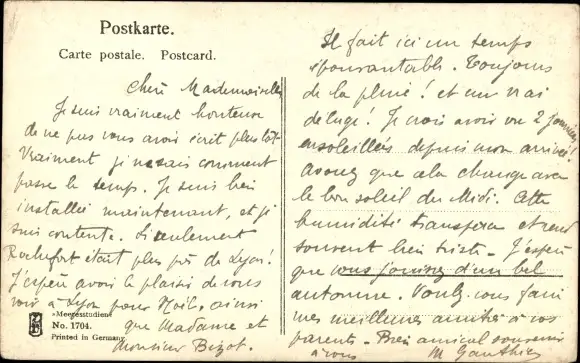 Postkarte.
Carte postale. Postcard.
Chère Mademoiselle
Je suis vraiment honteuse
de ne pas vous avoir écrit plus tôt
Vraiment je ne sais comment
passe le temps. Je suis bien
installée maintenant, et j'y
suis contente. Si seulement
Rochefort était plus près de Lyon!
J'espère avoir le plaisir de vous
voir à Lyon pour Noël, ainsi
que Madame et
Monsieur Bizot.
»Meeresstudien«
No. 1704.
Printed in Germany
Il fait ici un temps
épouvantable. Toujours
de la pluie! et un vrai
deluge! Je crois avoir vu 2 journées
ensoleillées depuis mon arrivée!
Avouez que cela change avec
le bon soleil du Midi. Cette
humidité transperce et rend
souvent bien triste - J'espère
que vous jouissez d'un bel
automne. Voulez-vous faire
mes meilleures amitiés à vos
parents - Bien amical souvenir
à vous M Gauthier